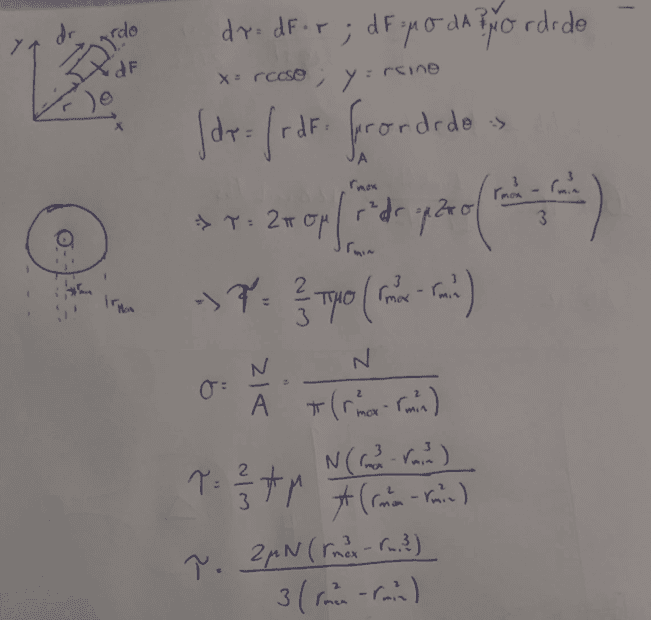 y dr rdθ dF r θ x
dτ = dF · r ; dF = μ σ dA ?✓ μ σ r dr dθ
x = r cosθ ; y = r sinθ
∫dτ = ∫ r dF = ∫_A μ r σ r dr dθ ⇒
⇒ τ = 2π σ μ ∫_{r_min}^{r_max} r² dr = μ 2π σ ( (r_max³ - r_min³) / 3 )
r_min r_max
⇒ τ = 2/3 π μ σ ( r_max³ - r_min³ )
σ = N/A = N / ( π ( r_max² - r_min² ) )
τ = 2/3 π μ N ( r_max³ - r_min³ ) / ( π ( r_max² - r_min² ) )
τ = 2 μ N ( r_max³ - r_min³ ) / ( 3 ( r_max² - r_min² ) )